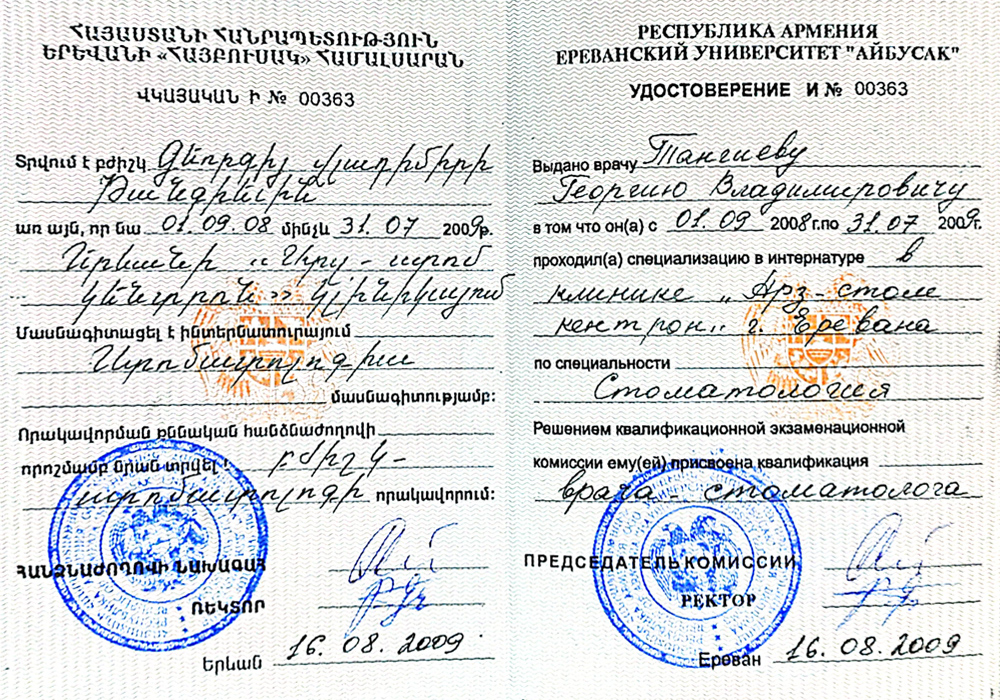 ՀԱՅԱՍՏԱՆԻ ՀԱՆՐԱՊԵՏՈՒԹՅՈՒՆ
ԵՐԵՎԱՆԻ «ՀԱՅԲՈՒՍԱԿ» ՀԱՄԱԼՍԱՐԱՆ
ՎԿԱՅԱԿԱՆ Ի № 00363
Տրվում է բժիշկ Գեորգիյ Վլադիմիրի
Թանգիևին
առ այն, որ նա 01.09.08 մինչև 31.07 2009թ.
Երևանի «Արզ-ստոմ
կենտրոն» կլինիկայում
Մասնագիտացել է ինտերնատուրայում
Ստոմատոլոգիա
մասնագիտությամբ:
Որակավորման քննական հանձնաժողովի
որոշմամբ նրան տրվել է բժիշկ-
ստոմատոլոգի որակավորում:
ՀԱՆՁՆԱԺՈՂՈՎԻ ՆԱԽԱԳԱՀ
ՌԵԿՏՈՐ
Երևան 16.08.2009
РЕСПУБЛИКА АРМЕНИЯ
ЕРЕВАНСКИЙ УНИВЕРСИТЕТ "АЙБУСАК"
УДОСТОВЕРЕНИЕ И № 00363
Выдано врачу Тангиеву
Георгию Владимировичу
в том что он(а) с 01.09 2008г.по 31.07 2009г.
проходил(а) специализацию в интернатуре в
клинике „Арз-стом
кентрон" г. Еревана
по специальности
Стоматология
Решением квалификационной экзаменационной
комиссии ему(ей) присвоена квалификация
врача-стоматолога
ПРЕДСЕДАТЕЛЬ КОМИССИИ
РЕКТОР
Ереван 16.08.2009